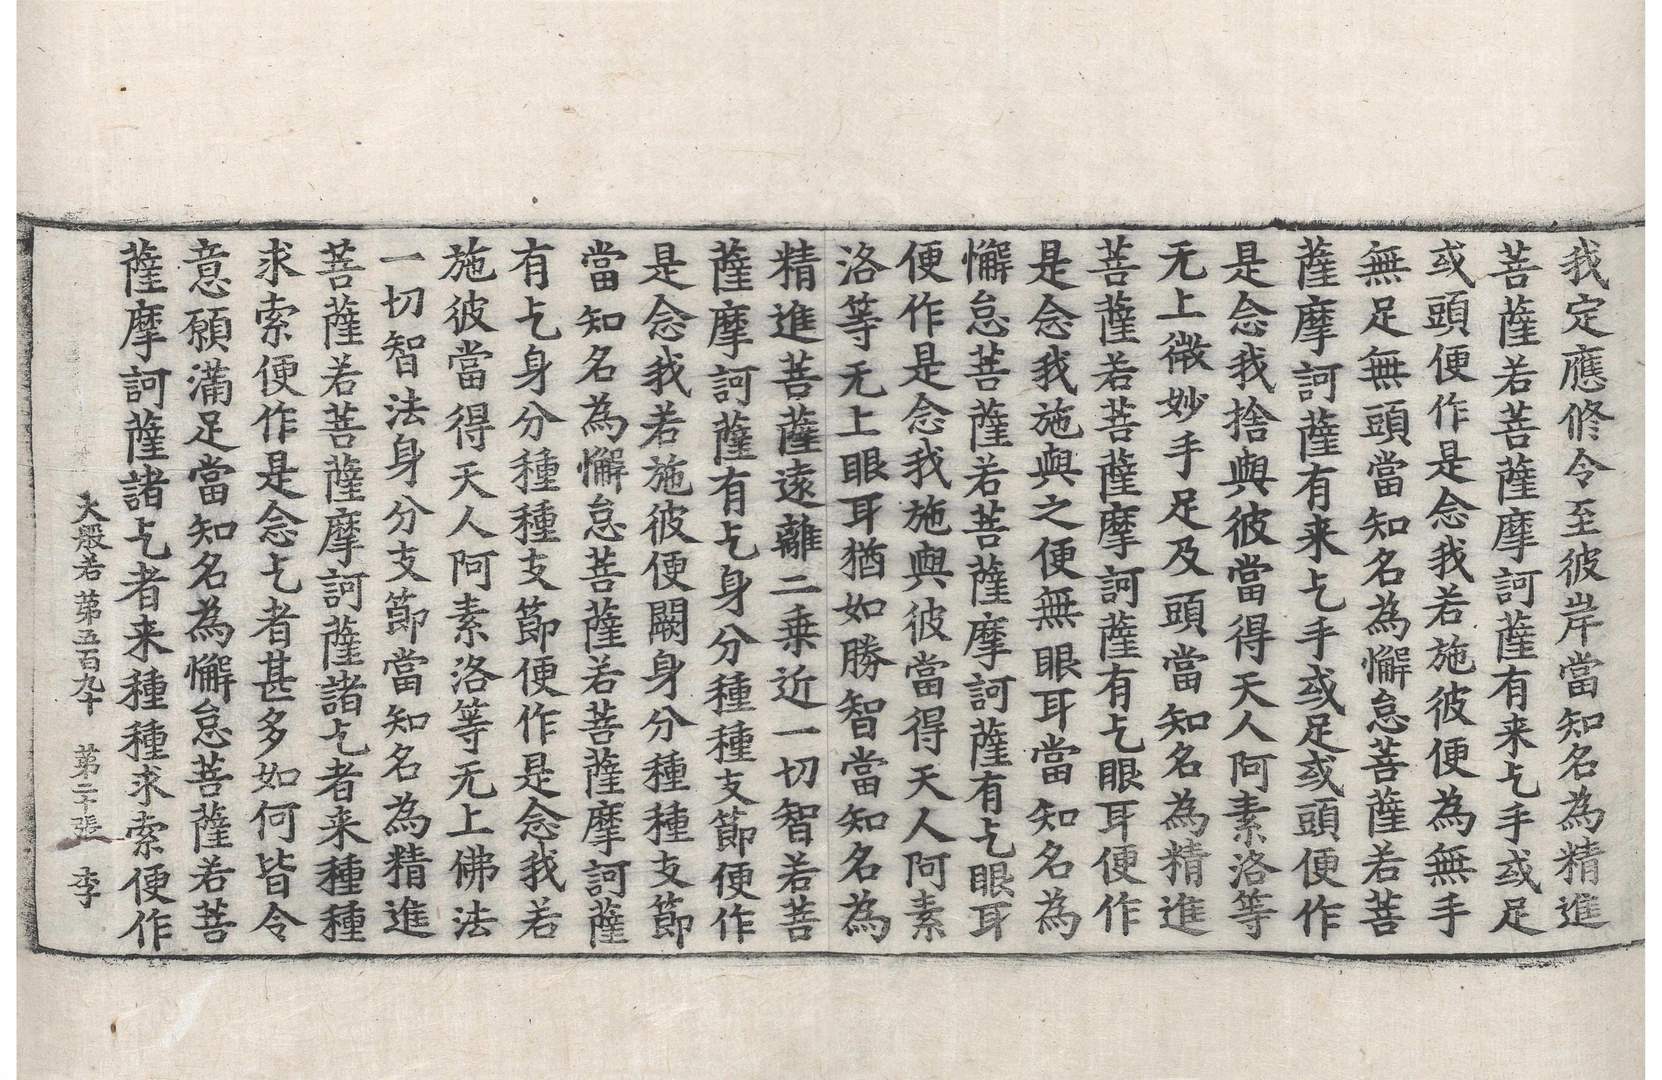 我定應修令至彼岸當知名為精進
菩薩若菩薩摩訶薩有来乞手或足
或頭便作是念我若施彼便為無手
無足無頭當知名為懈怠菩薩若菩
薩摩訶薩有来乞手或足或頭便作
是念我捨與彼當得天人阿素洛等
无上微妙手足及頭當知名為精進
菩薩若菩薩摩訶薩有乞眼耳便作
是念我施與之便無眼耳當知名為
懈怠菩薩若菩薩摩訶薩有乞眼耳
便作是念我施與彼當得天人阿素
洛等无上眼耳猶如勝智當知名為
精進菩薩遠離二乗近一切智若菩
薩摩訶薩有乞身分種種支節便作
是念我若施彼便闕身分種種支節
當知名為懈怠菩薩若菩薩摩訶薩
有乞身分種種支節便作是念我若
施彼當得天人阿素洛等无上佛法
一切智法身分支節當知名為精進
菩薩若菩薩摩訶薩諸乞者来種種
求索便作是念乞者甚多如何皆令
意願滿足當知名為懈怠菩薩若菩
薩摩訶薩諸乞者来種種求索便作
大般若苐五百九十　苐二十張　李